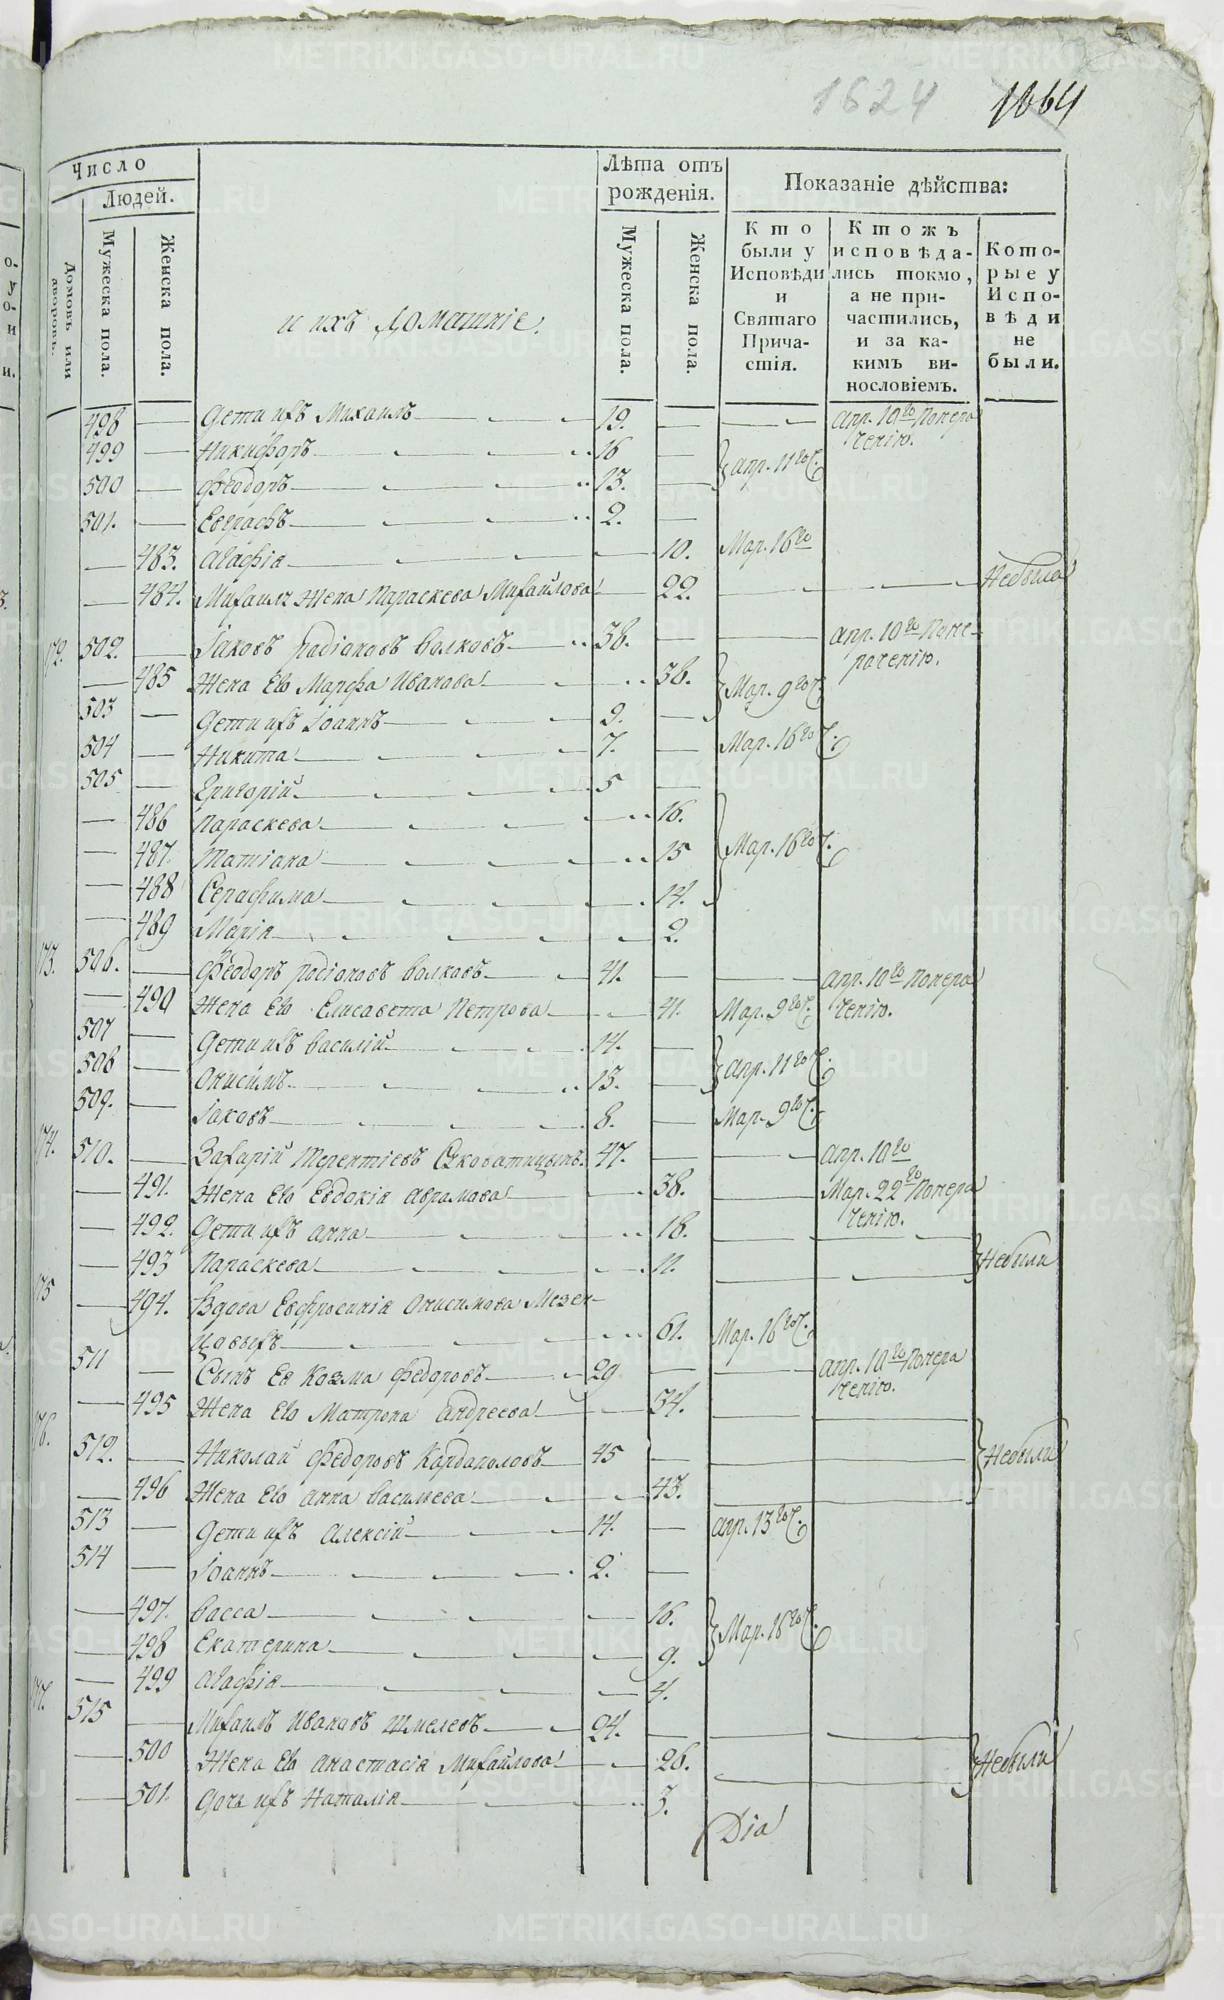 1624 1064
Число
Людей.
Домовъ или дворовъ.
Мужеска пола.
Женска пола.
и ихъ домашніе.
Лѣта отъ рожденія.
Мужеска пола.
Женска пола.
Показаніе дѣйства:
Кто были у Исповѣди и Святаго Причастія.
Ктожъ исповѣдались токмо, а не причастились, и за какимъ винословіемъ.
Которые у Исповѣди не были.
498 — Дети ихъ Михаилъ — 19. — — апр. 10го Понера
чению.
499 — Никифоръ — 16 — апр. 11го ч.
500 — Феодоръ — 13. —
501. — Евграфъ — 2. —
— 483. Агафіа — 10. Мар. 16го
— 484. Михаила Жена Параскева Михайлова — 22. — — Небыла
172. 502. — Іаковъ Родіоновъ Волковъ — 38. — — апр. 10го Поне-
рачению.
— 485 Жена Его Марфа Иванова — 38. Мар. 9го ч.
503 — Дети ихъ Іоаннъ — 9. —
504 — Никита — 7. — Мар. 16го ч.
505 — Григорій — 5 —
— 486 Параскева — 16.
— 487. Татіана — 15 Мар. 16го ч.
— 488 Серафима — 14.
— 489 Марія — 2.
173. 506. — Феодоръ Родіоновъ Волковъ — 41. — — апр. 10го Понера
чению.
— 490 Жена Его Елисавета Петрова — 41. Мар. 9го ч.
507 — Дети ихъ Василій — 14. — апр. 11го ч.
508 — Онисимъ — 13. —
509. — Іаковъ — 8. — Мар. 9го ч.
174. 510. — Захарій Терентіевъ — 47. — — апр. 10го
— 491. Жена Его Евдокія Аврамова — 38. — Мар. 22го Понера
чению.
— 492. Дети ихъ Анна — 18. — —
— 493 Параскева — 11. — — Небыли
175 — 494. Вдова Евфросинія Онисимова Мезен-
цовыхъ — 61. Мар. 16го ч.
511 — Сынъ Ея Козма Федоровъ — 29 — — апр. 10го Понера
чению.
— 495 Жена Его Матрона Андреева — 34. — —
176. 512. — Николай Федоровъ Кардаполовъ — 45 — — Небыли
— 496 Жена Его Анна Васильева — 43. —
513 — Дети ихъ Алексій — 14. — апр. 13го ч.
514 — Іоаннъ — 2. —
— 497. Васса — 16.
— 498 Екатерина — 9. Мар. 16го ч.
— 499 Агафія — 4.
177. 515 — Михаилъ Ивановъ Шмелевъ — 24. — — —
— 500 Жена Его Анастасія Михайлова — 26. — Небыли
— 501. Дочь ихъ Наталія — 3.
Dia
METRIKI.GASO-URAL.RU